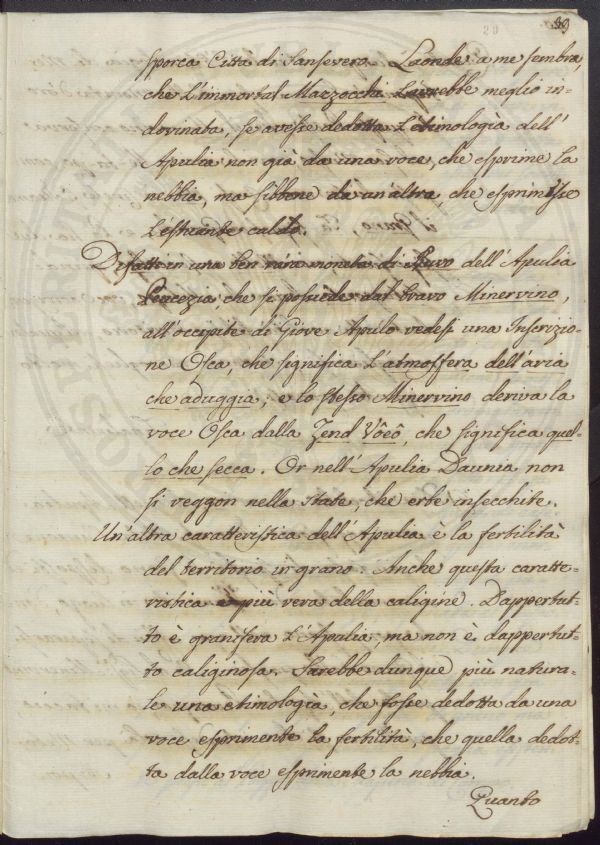 39
20
sporca Citta di Sansevero. Laonde a me sembra,
che l'immortal Mazzocchi l'avrebbe meglio in=
dovinata, se avesse dedotta l'etimologìa dell'
Apulia non già da una voce, che esprime la
nebbia, ma sibbene da un'altra, che esprimesse
l'estuante caldo.
Difatti in una ben rara moneta di Ruvo dell'Apulia
Peucezia, che si possiede dal bravo Minervino,
all'occipite di Giove Apulo vedesi una Inscrizio=
ne Osca, che significa l'atmosfera dell'aria
che aduggia; e lo stesso Minervino deriva la
voce Osca dalla Zend Vôeô, che significa quel=
lo che secca. Or nell'Apulia Daunia non
si veggon nella state, che erbe insecchite.
Un'altra caratteristica dell'Apulia è la fertilità
del territorio in grano. Anche questa caratte=
ristica è più vera della caligine. Dappertut=
to è granifera l'Apulia, ma non è dappertut=
to caliginosa. Sarebbe dunque più natura=
le una etimologìa, che fosse dedotta da una
voce esprimente la fertilità, che quella dedot=
ta dalla voce esprimente la nebbia.
Quanto